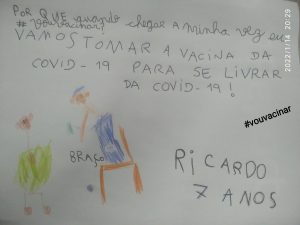 POR QUE quando chegar a minha vez eu
# vou vacinar?
VAMOS TOMAR A VACINA DA
COVID-19 PARA SE LIVRAR
DA COVID-19!
#vouvacinar
BRAÇO
RICARDO
7 ANOS
2022/1/14 20:29